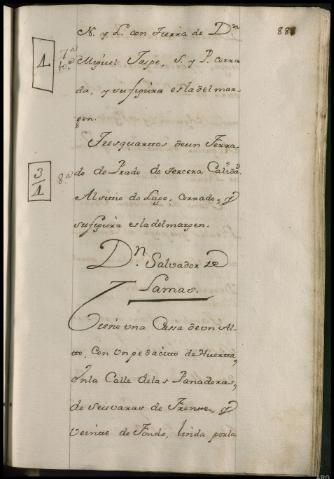 N. y L. con tierra de Dn
88
1
7a
Miguel Taspe, S. y P. cerra
da, y su figura esta del mar
gen.
Tres quartos de un Ferra
3/4
8a
do de Prado de tercera Calidd.
Al sitio do Lago, cerrado, y
su figura esta del margen.
Dn. Salvador de
Lamas.
Tiene una Casa de un Al
to, Con un pedacito de Huerta,
en la Calle de las Panaderas,
de seis varas de Frente, y
veinte de Fondo, linda por la